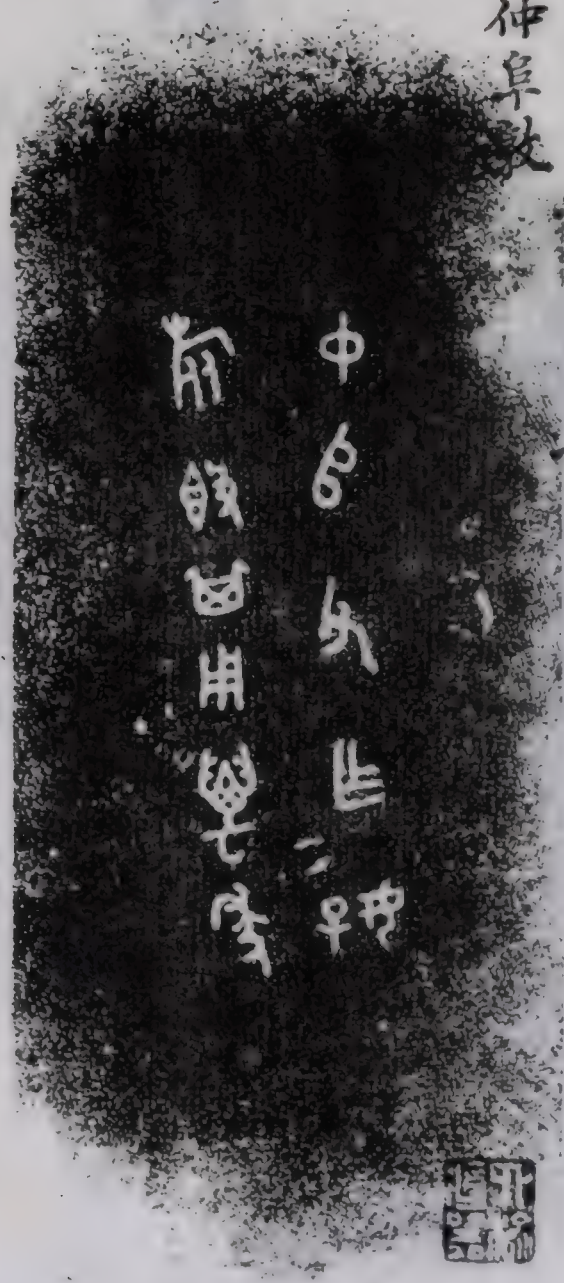 仲阜父
中𠂤父乍好
旅𣪘其用萬年